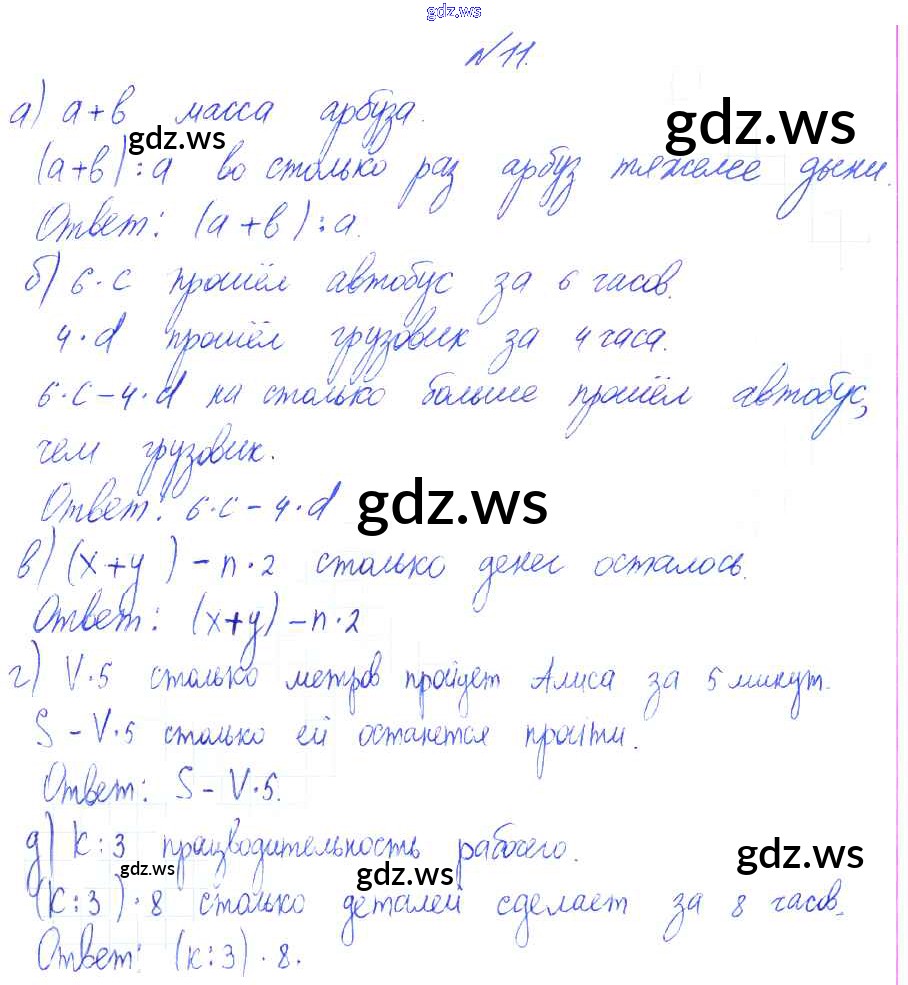 gdz.ws
№ 11.
а) а+в масса арбуза.
gdz.ws gdz.ws
(а+в):а во столько раз арбуз тяжелее дыни.
Ответ: (а+в):а.
б) 6·с прошёл автобус за 6 часов.
4·d прошёл грузовик за 4 часа.
6·с-4·d на столько больше прошёл автобус,
чем грузовик.
gdz.ws
Ответ: 6·с-4·d
в) (x+y)-n·2 столько денег осталось.
Ответ: (x+y)-n·2
г) V·5 столько метров пройдет Алиса за 5 минут.
S-V·5 столько ей останется пройти.
Ответ: S-V·5.
д) k:3 производительность рабочего.
gdz.ws gdz.ws gdz.ws
(k:3)·8 столько деталей сделает за 8 часов.
Ответ: (k:3)·8.